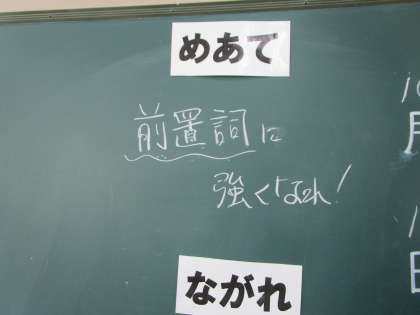 めあて
前置詞に
強くなれ!
ながれ